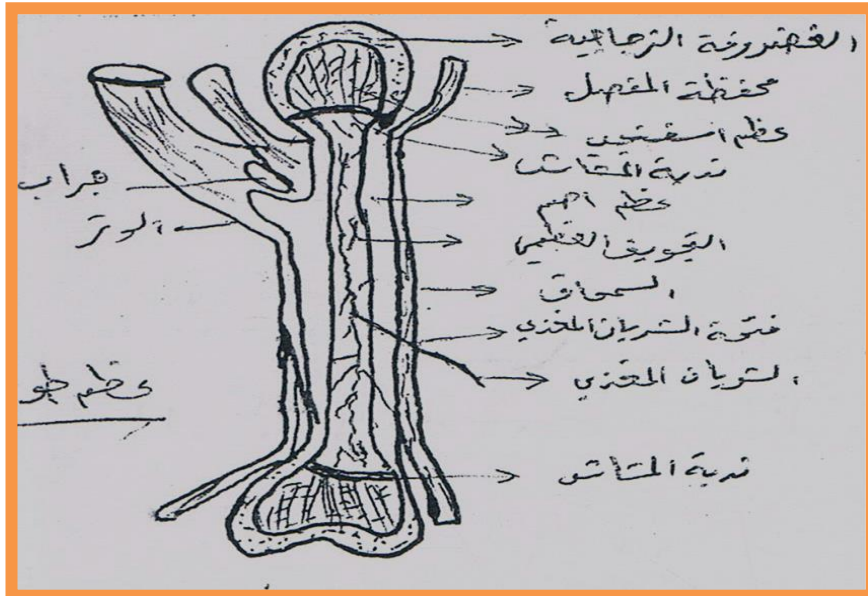 الغضروفة الزجاجية
محفظة المفصل
عظم اسفنجي
ندبة المشاش
عظم أصم
التجويف العظمي
السمحاق
فتوة الشريان المغذي
الشريان المغذي
ندبة المشاش
جراب
الوتر
عظم طو